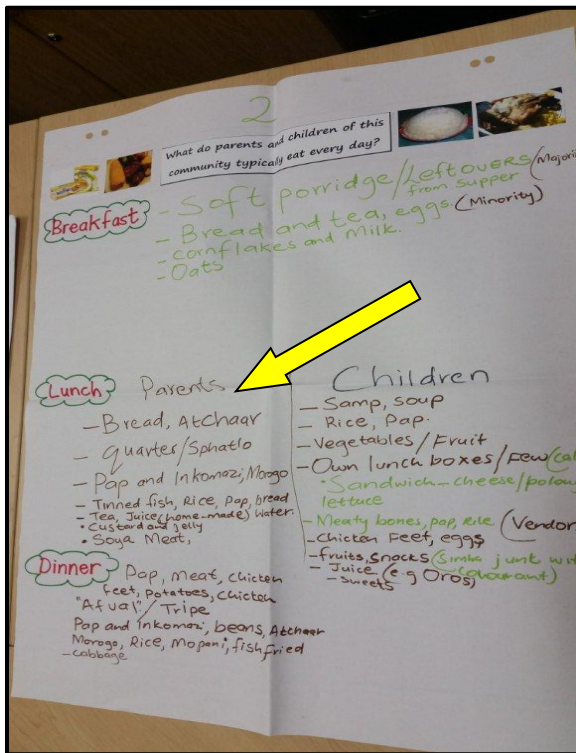 2
What do parents and children of this
community typically eat every day?
Breakfast
- Soft porridge/Leftovers (Majori
from supper
- Bread and tea, eggs. (Minority)
- cornflakes and Milk.
- Oats
Lunch
Parents
- Bread, Atchaar
- quarter/Sphatlo
- Pap and Inkomazi, Morogo
- Tinned fish, Rice, Pap, bread
- Tea, Juice (home-made) Water
• Custard and jelly
• Soya Meat,
Children
- Samp, soup
- Rice, Pap.
- Vegetables / Fruit
- Own lunch boxes / Few (
*Sandwich - cheese/polony
lettuce
- Meaty bones, pap, rice. (Vendor
- Chicken Feet, eggs
- fruits, snacks (Simba junk wit
- Juice (e.g Oros) colourant)
- sweets
Dinner
Pap, Meat, Chicken
feet, potatoes, chicken
"Afval"/Tripe
Pap and Inkomazi, beans, Atchaar
Morogo, Rice, Mopani, fish fried
- cabbage